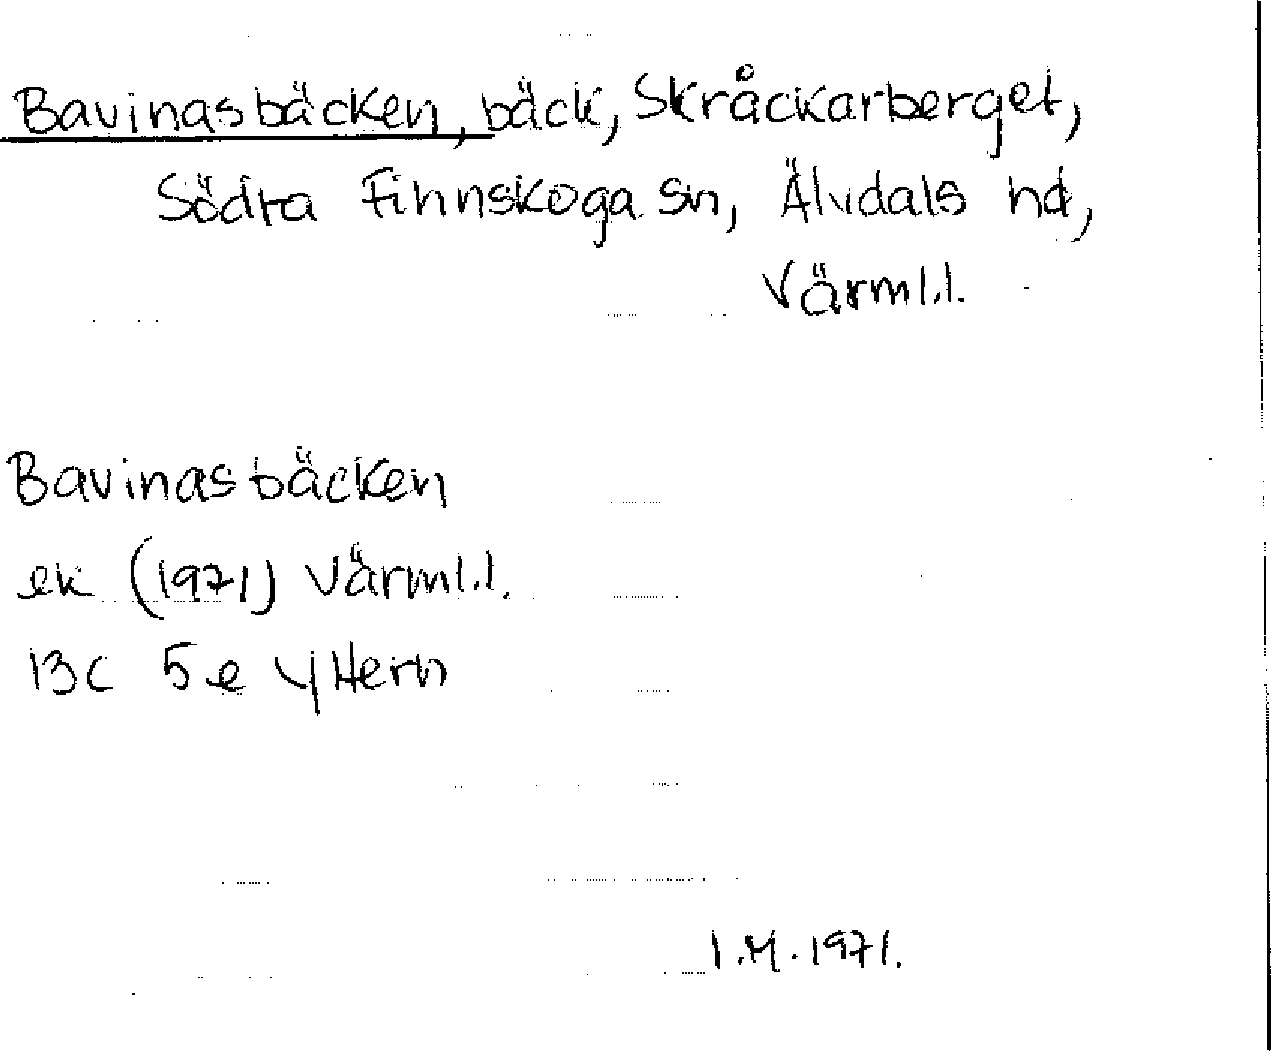 Bavinasbäcken, bäck, Skråckarberget,
Södra Finnskoga sn, Älvdals hd,
Värml.l.
Bavinasbäcken
ek (1971) Värml.l.
13C 5e y Hern
I.M. 1971.